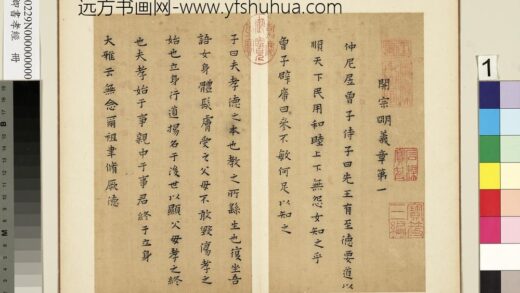 远方书画网-www.yfshuhua.com
開宗明義章第一
仲尼居曾子侍子曰先王有至德要道以
順天下民用和睦上下無怨女知之乎
曾子辟席曰參不敏何足以知之
子曰夫孝德之本也教之所繇生也復坐吾
語女身體髮膚受之父母不敢毀傷孝之
始也立身行道揚名于後世以顯父母孝之終
也夫孝始于事親中于事君終于立身
大雅云無念爾祖聿脩厥德
書孝經 冊
0229N000000000
1